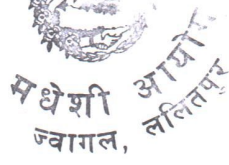 मधेशी आयोग
ज्वागल, ललितपुर